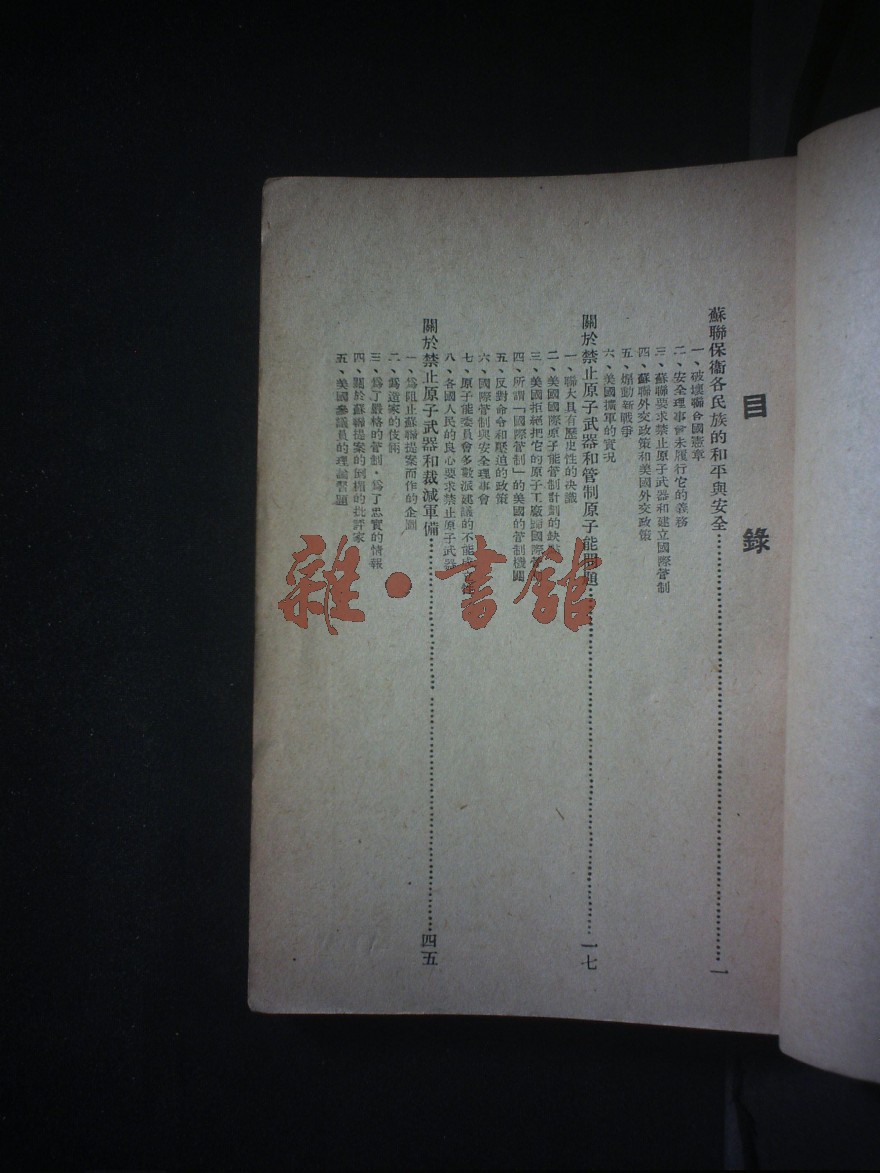 目錄
蘇聯保衞各民族的和平與安全…………一
一、破壞聯合國憲章
二、安全理事會未履行它的義務
三、蘇聯要求禁止原子武器和建立國際管制
四、蘇聯外交政策和美國外交政策
五、煽動新戰爭
六、美國擴軍的實況
關於禁止原子武器和管制原子能問題…………一七
一、聯大具有歷史性的決議
二、美國國際原子能管制計劃的缺點
三、美國拒絕把它的原子工廠歸國際管
四、所謂「國際管制」的美國的管制機關
五、反對命令和壓迫的政策
六、國際管制與安全理事會
七、原子能委員會多數派建議的不能
八、各國人民的良心要求禁止原子武器
關於禁止原子武器和裁減軍備…………四五
一、爲阻止蘇聯提案而作的企圖
二、僞造家的伎倆
三、爲了嚴格的管制，爲了忠實的情報
四、關於蘇聯提案的倒楣的批評家
五、美國參議員的理論習題
雜·書館